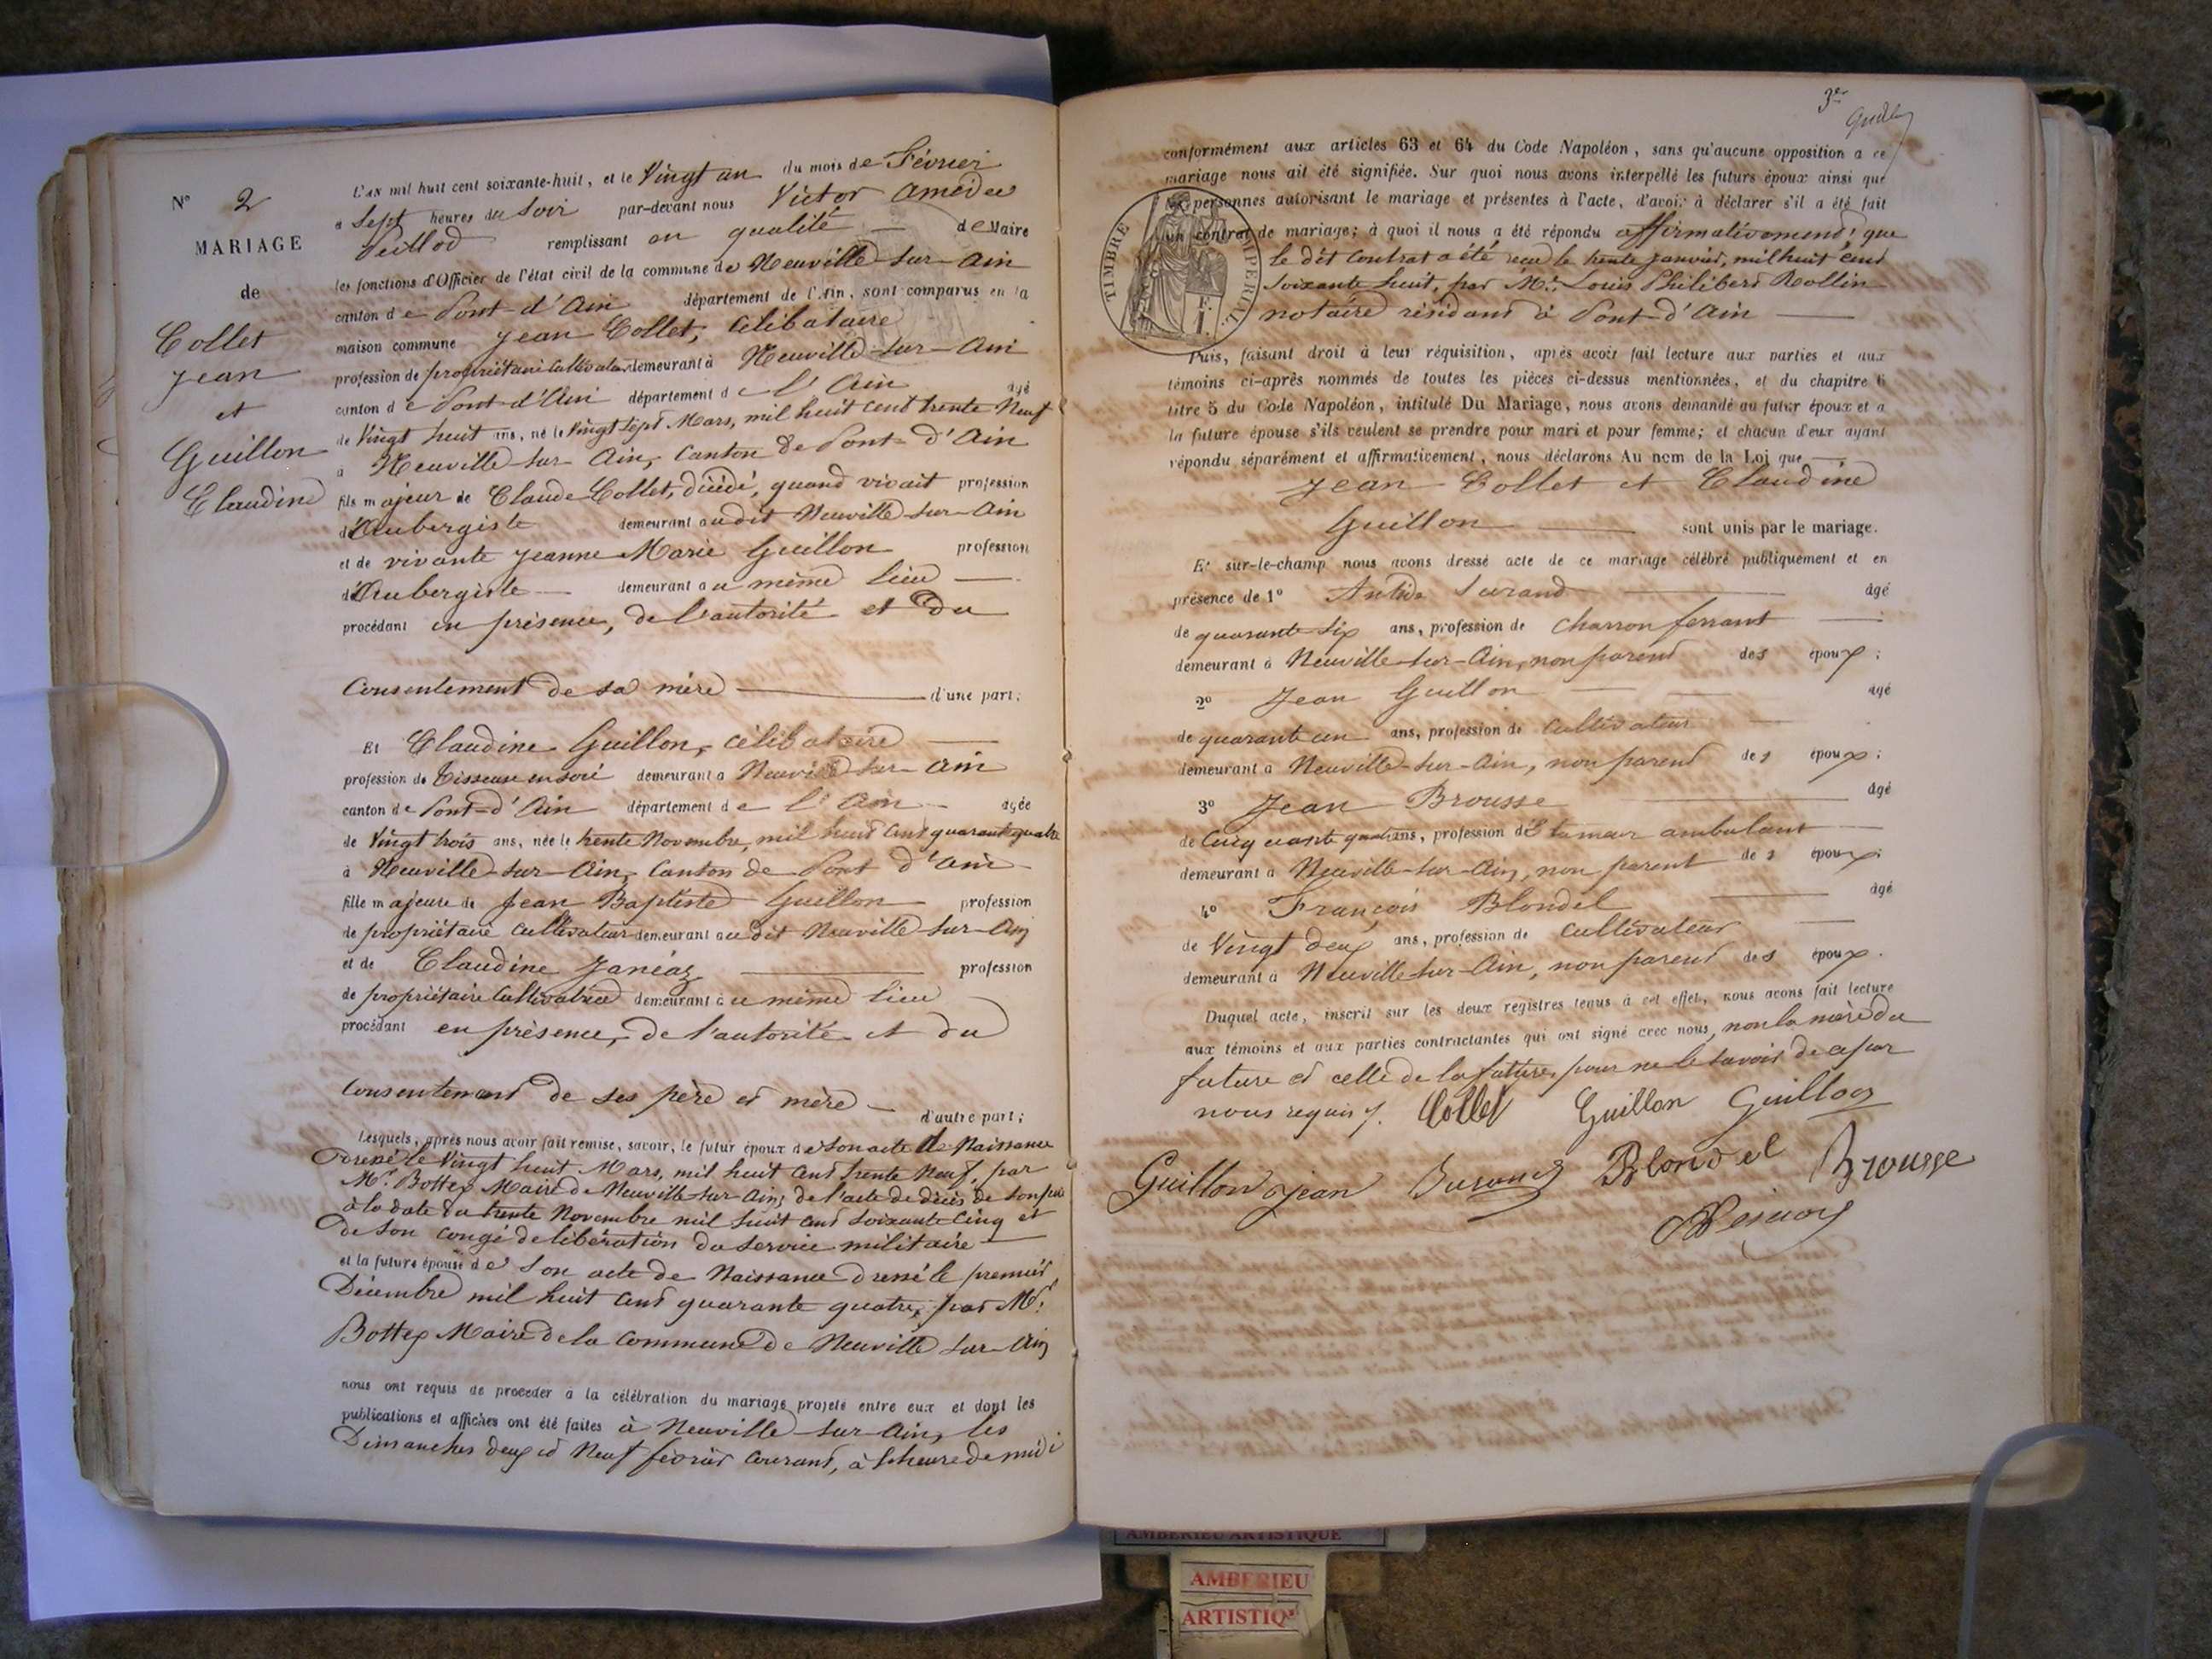 N° 2
MARIAGE
de
Collet
Jean
et
Guillon
Claudine
L'an mil huit cent soixante-huit, et le Vingt un du mois de Février
a Sept heures du Soir par-devant nous Victor Amédée
remplissant en qualité de Maire
les fonctions d'Officier de l'état civil de la commune de Neuville-sur-Ain
canton de Pont-d'Ain département de l'Ain, sont comparus en la
maison commune Jean Collet, célibataire
profession de propriétaire Cultivateur demeurant à Neuville-sur-Ain
canton de Pont-d'Ain département de l'Ain agé
de Vingt huit ans, né le Vingt Sept Mars, mil huit cent trente Neuf
à Neuville-sur-Ain, Canton de Pont-d'Ain
fils majeur de Claude Collet, décédé, quand vivait profession
d'Aubergiste demeurant audit Neuville-sur-Ain
et de vivante Jeanne Marie Guillon profession
d'Aubergiste demeurant au même lieu
procédant en présence, de l'autorité et du
Consentement de sa mère d'une part;
Et Claudine Guillon, célibataire
profession de Tisseuse en soie demeurant a Neuville-sur-Ain
canton de Pont-d'Ain département de l'Ain agée
de Vingt trois ans, née le trente Novembre, mil huit cent quarante quatre
à Neuville-sur-Ain, Canton de Pont d'Ain
fille majeure de Jean Baptiste Guillon profession
de propriétaire Cultivateur demeurant audit Neuville-sur-Ain
et de Claudine Janéaz profession
de propriétaire Cultivatrice demeurant au même lieu
procédant en présence, de l'autorité et du
Consentement de ses père et mère d'autre part;
Lesquels, après nous avoir fait remise, savoir, le futur époux de son acte de Naissance
Dressé le Vingt huit Mars, mil huit cent trente Neuf, par
Mr. Bottex Maire de Neuville-sur-Ain; de l'acte de décès de son père
à la date du trente Novembre mil huit cent soixante Cinq et
de son congé de libération du service militaire
et la future épouse de Son acte de Naissance dressé le premier
Décembre mil huit cent quarante quatre, par Mr.
Bottex Maire de la commune de Neuville-sur-Ain
nous ont requis de procéder à la célébration du mariage projeté entre eux et dont les
publications et affiches ont été faites à Neuville-sur-Ain, les
Dimanches deux et Neuf février courant, à l'heure de midi
3e
conformément aux articles 63 et 64 du Code Napoléon, sans qu'aucune opposition a ce
mariage nous ait été signifiée. Sur quoi nous avons interpellé les futurs époux ainsi que
les personnes autorisant le mariage et présentes à l'acte, d'avoir à déclarer s'il a été fait
un contrat de mariage; à quoi il nous a été répondu affirmativement! que
le dit Contrat a été reçu le trente janvier, mil huit cent
soixante huit, par Me. Louis Philibert Rollin
notaire résidant à Pont-d'Ain
TIMBRE IMPÉRIAL
F.
1.
Puis, faisant droit à leur réquisition, après avoir fait lecture aux parties et aux
témoins ci-après nommés de toutes les pièces ci-dessus mentionnées, et du chapitre 6
titre 5 du Code Napoléon, intitulé Du Mariage, nous avons demandé au futur époux et a
la future épouse s'ils veulent se prendre pour mari et pour femme; et chacun d'eux ayant
répondu séparément et affirmativement, nous déclarons Au nom de la Loi que
Jean Collet et Claudine
Guillon sont unis par le mariage.
Et sur-le-champ nous avons dressé acte de ce mariage célébré publiquement et en
présence de 1° Antide agé
de quarante six ans, profession de Charron ferrant
demeurant à Neuville-sur-Ain, non parent des époux;
2° Jean Guillon agé
de quarante un ans, profession de Cultivateur
demeurant a Neuville-sur-Ain, non parent des époux;
3° Jean Brousse agé
de Cinquante quatre ans, profession d'Etameur ambulant
demeurant a Neuville-sur-Ain, non parent des époux;
4° François Blondel agé
de Vingt deux ans, profession de Cultivateur
demeurant à Neuville-sur-Ain, non parent des époux.
Duquel acte, inscrit sur les deux registres tenus à cet effet, nous avons fait lecture
aux témoins et aux parties contractantes qui ont signé avec nous, non la mère du
future et celle de la future, pour ne le savoir de ce par
nous requis. Collet Guillon Guillon
Guillon Jean Blondel Brousse
AMBERIEU ARTISTIQUE
AMBERIEU
ARTISTIQ